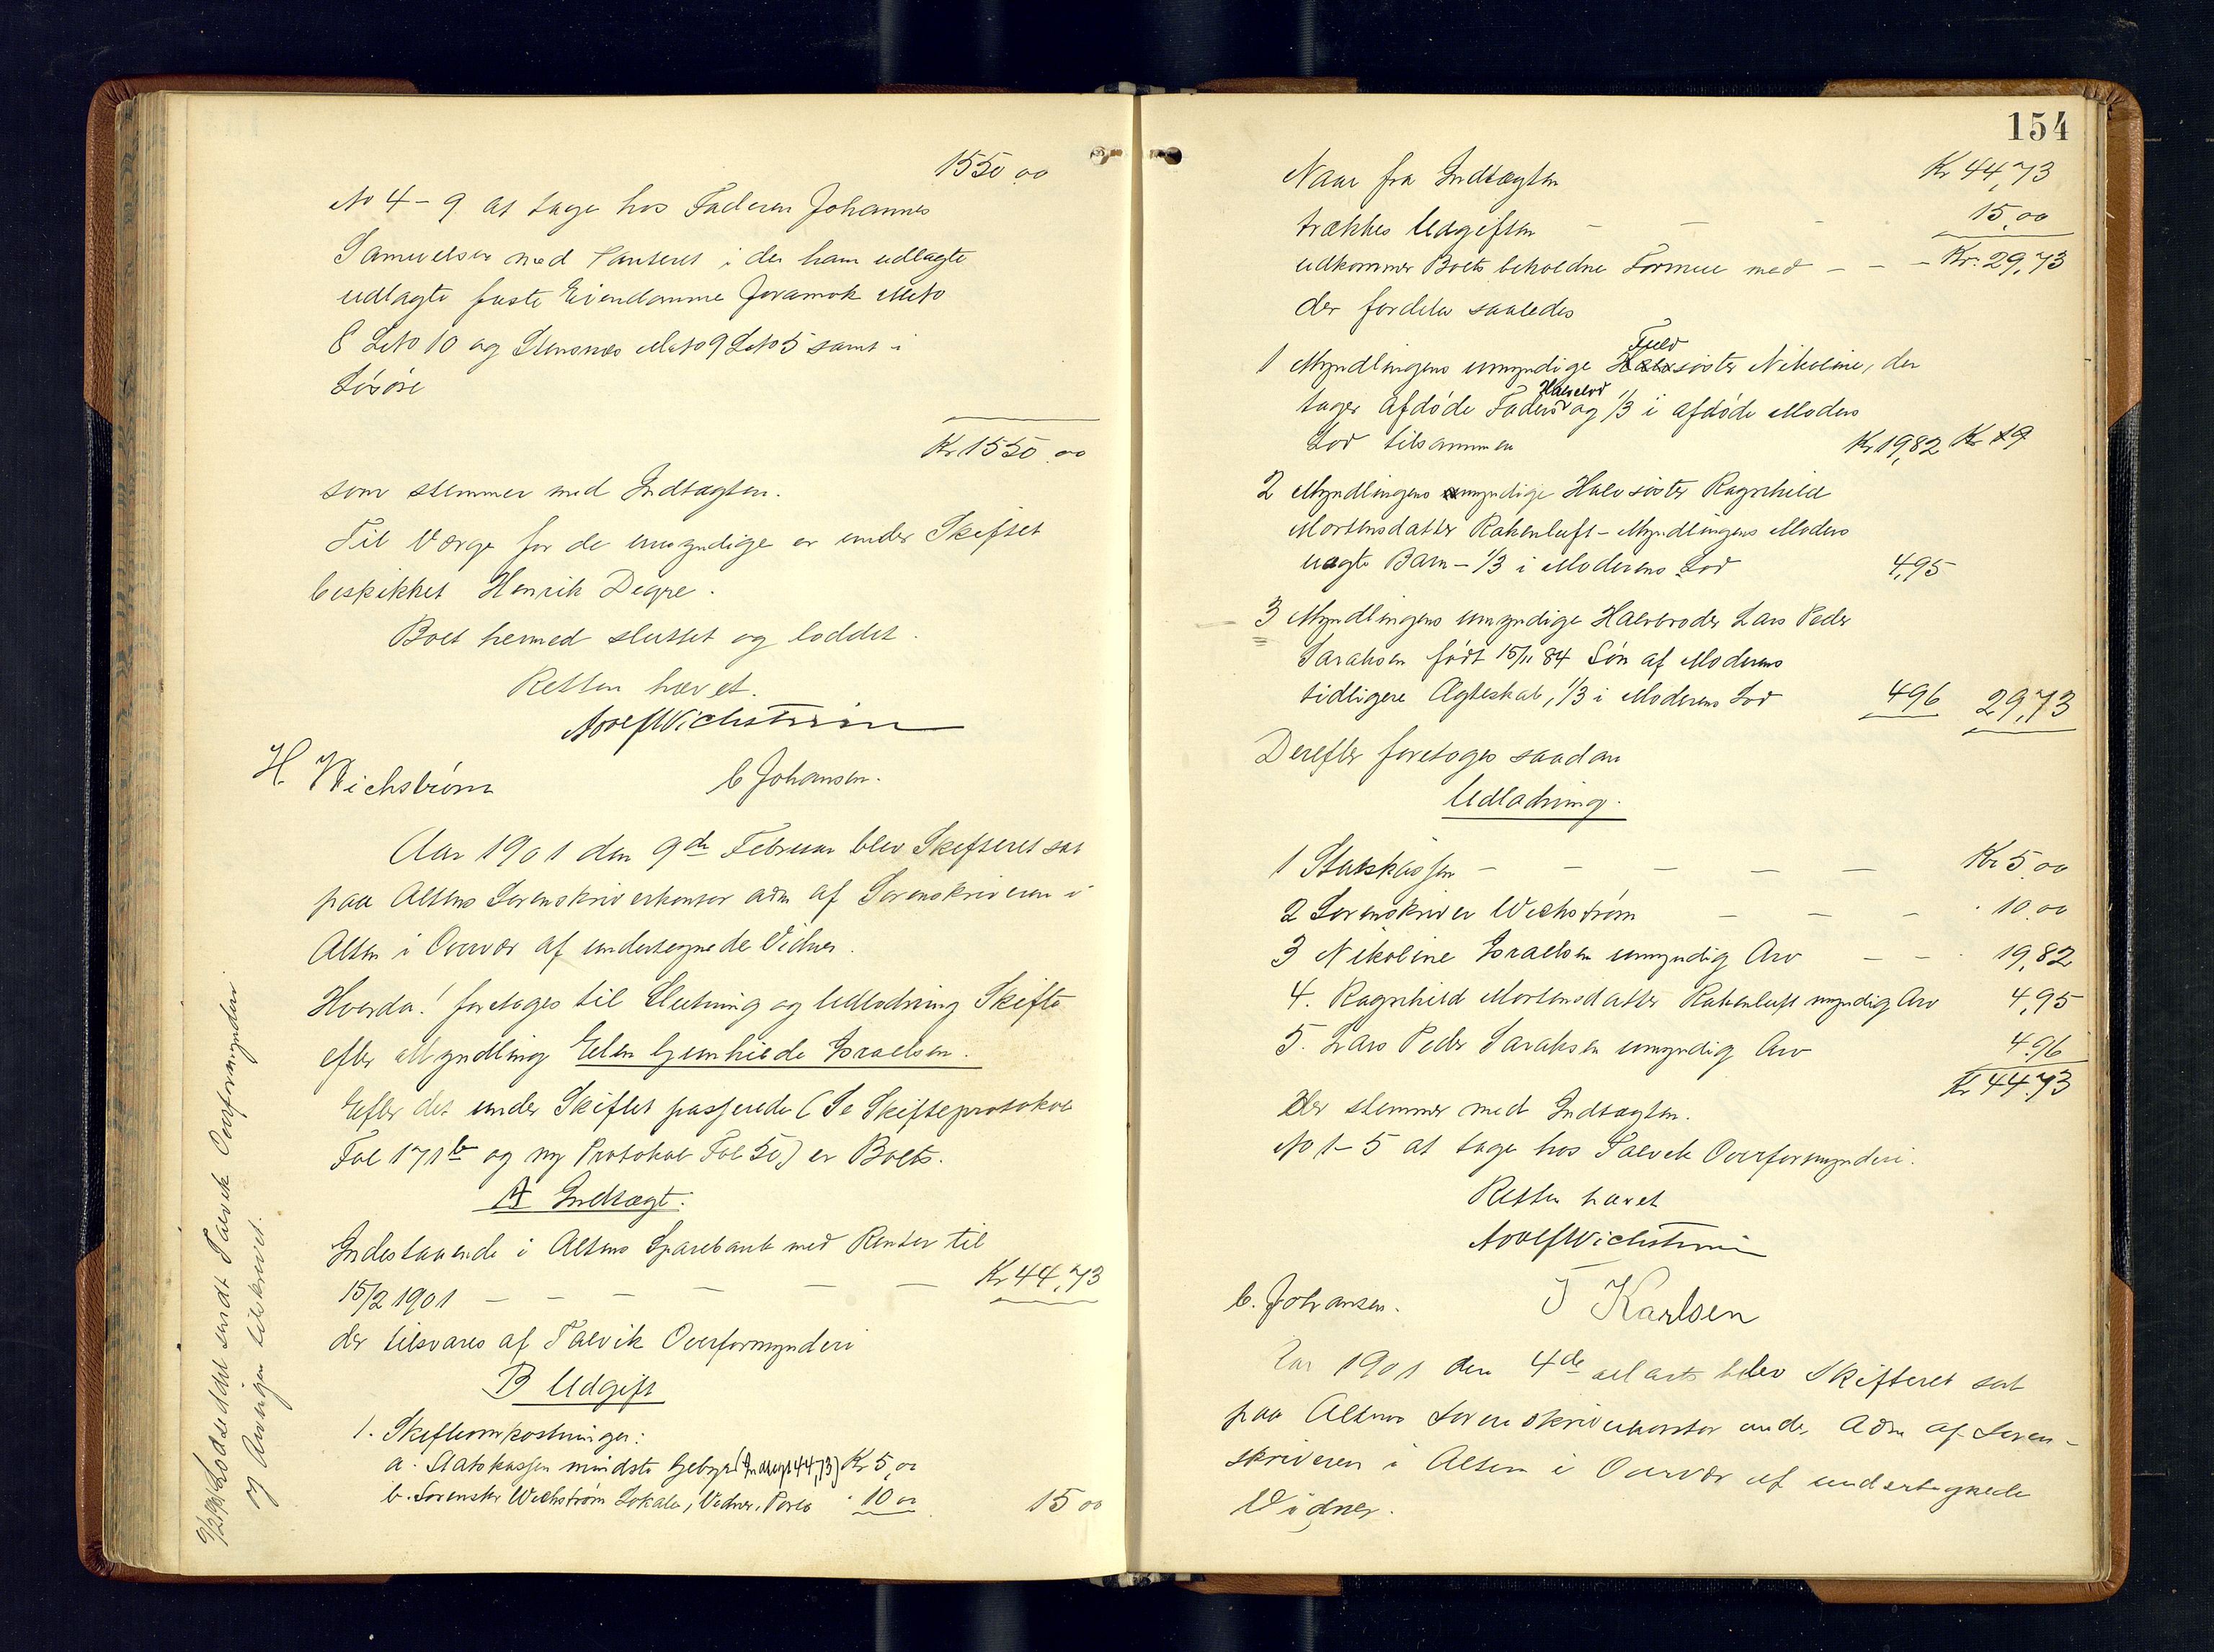 1550.00
No 4-9 at tage hos Faderen Johannes
Samuelsen med Panteret i den ham udlagte
udlagte faste Eiendomme Joramok MNo
8 LNo 10 og Stensnes MNo 9 LNo 5 samt i
Løsøre
Kr 1550.00
som stemmer med Indtægten.
Til Værge for de umyndige er under Skiftet
beskikket Henrik Degre.
Boet hermed sluttet og loddet.
Retten hævet.
Adolf Wichstrøm
H. Wichstrøm C Johansen.
Aar 1901 den 9de Februar blev Skifteret sat
paa Altens Sorenskriverkontor adm af Sorenskriveren i
Alten i Overvær af undertegnede Vidner.
Hvorda! foretoges til Slutning og Udlodning Skifte
efter Myndling Elen Gunhilde Israelsen.
Efter det under Skiftet passerede (Se Skifteprotokol
Fol 171b og ny Protokol Fol 50) er Boets.
A Indtægt.
Indestaaende i Altens Sparebank med Renter til
15/2 1901 - - - - - - Kr 44,73
der tilsvares af Talvik Overformynderi
B Udgift
1. Skifteomkostninger:
a. Statskassen mindste Gebyr (Indtægt 44,73) Kr 5,00
b. Sorenskr Wichstrøm Lokale, Vidner, Porto " 10 00 15 00
9/2 1901 Loddeddel sendt Talvik Overformynderi
og Arvinger tilskrevet.
154
Naar fra Indtægten Kr 44,73
trækkes Udgiften - - - 15,00
udkommer Boets beholdne Formue med - - - Kr. 29,73
der fordeles saaledes
Fuld
1 Myndlingens umyndige Halvsøster Nikoline, der
Halvlod
tager afdøde Faders og 1/3 i afdøde Moders
Lod tilsammen Kr 19,82 Kr 19
2 Myndlingens umyndige Halvsøster Ragnhild
Mortensdatter Rakenluft - Myndlingens Moders
uægte Barn - 1/3 i Moderens Lod 4,95
3 Myndlingens umyndige Halvbroder Lars Peder
Saraksen født 15/11 84 Søn af Moderens
tidligere Ægteskab, 1/3 i Moderens Lod 496 29,73
Derefter foretoges saadan
Udlodning.
1 Statskassen - - - - - Kr 5,00
2 Sorenskriver Wichstrøm - - - " 10.00
3 Nikoline Israelsen umyndig Arv - - " 19,82
4. Ragnhild Mortensdatter Rakenluft myndig Arv 4,95
5. Lars Peder Saraksen umyndig Arv 4.96
Kr 44.73
Der stemmer med Indtægten.
No 1-5 at tage hos Talvik Overformynderi.
Retten hævet
Adolf Wichstrøm
C. Johansen. T Karlsen
Aar 1901 den 4de Marts blev Skifteret sat
paa Altens Sorenskriverkontor under Adm af Soren-
skriveren i Alten i Overvær af undertegnede
Vidner.